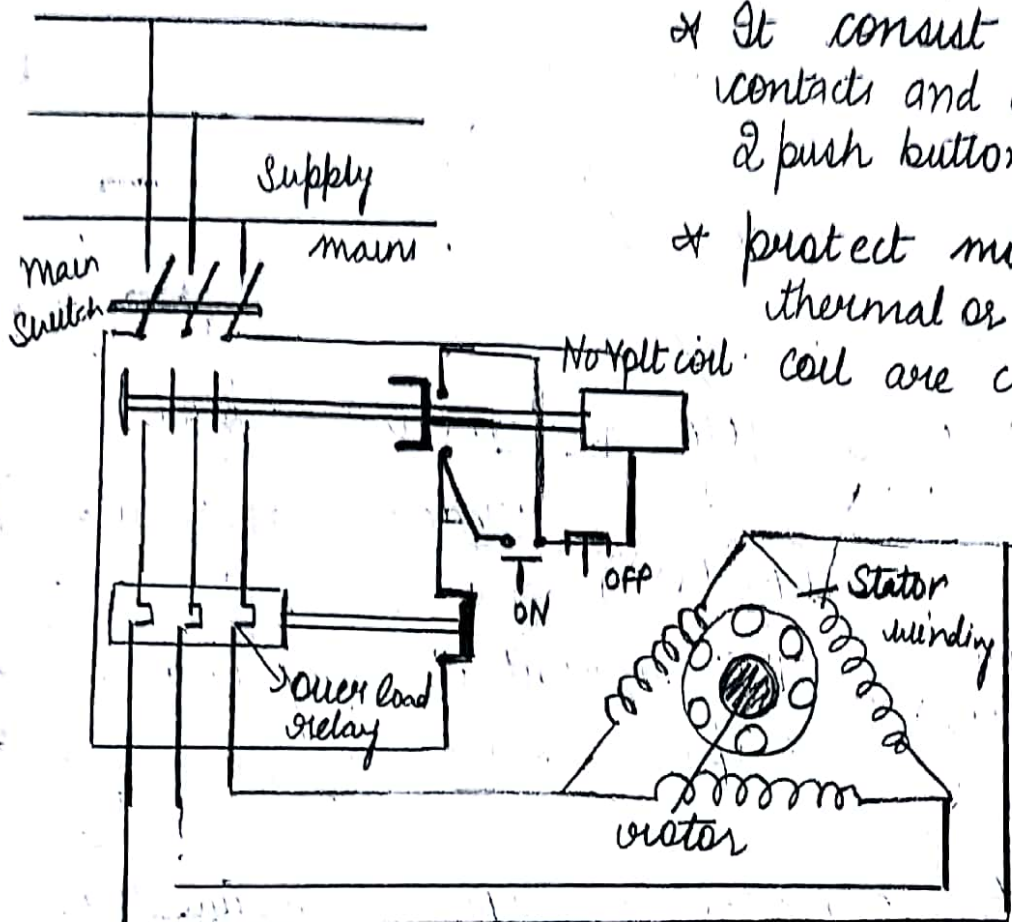 * It consist
contacts and
2 push button
* protect
thermal or
coil are
Supply
mains
Main
Switch
No Volt coil
ON
OFF
Stator
winding
over load
relay
rotor